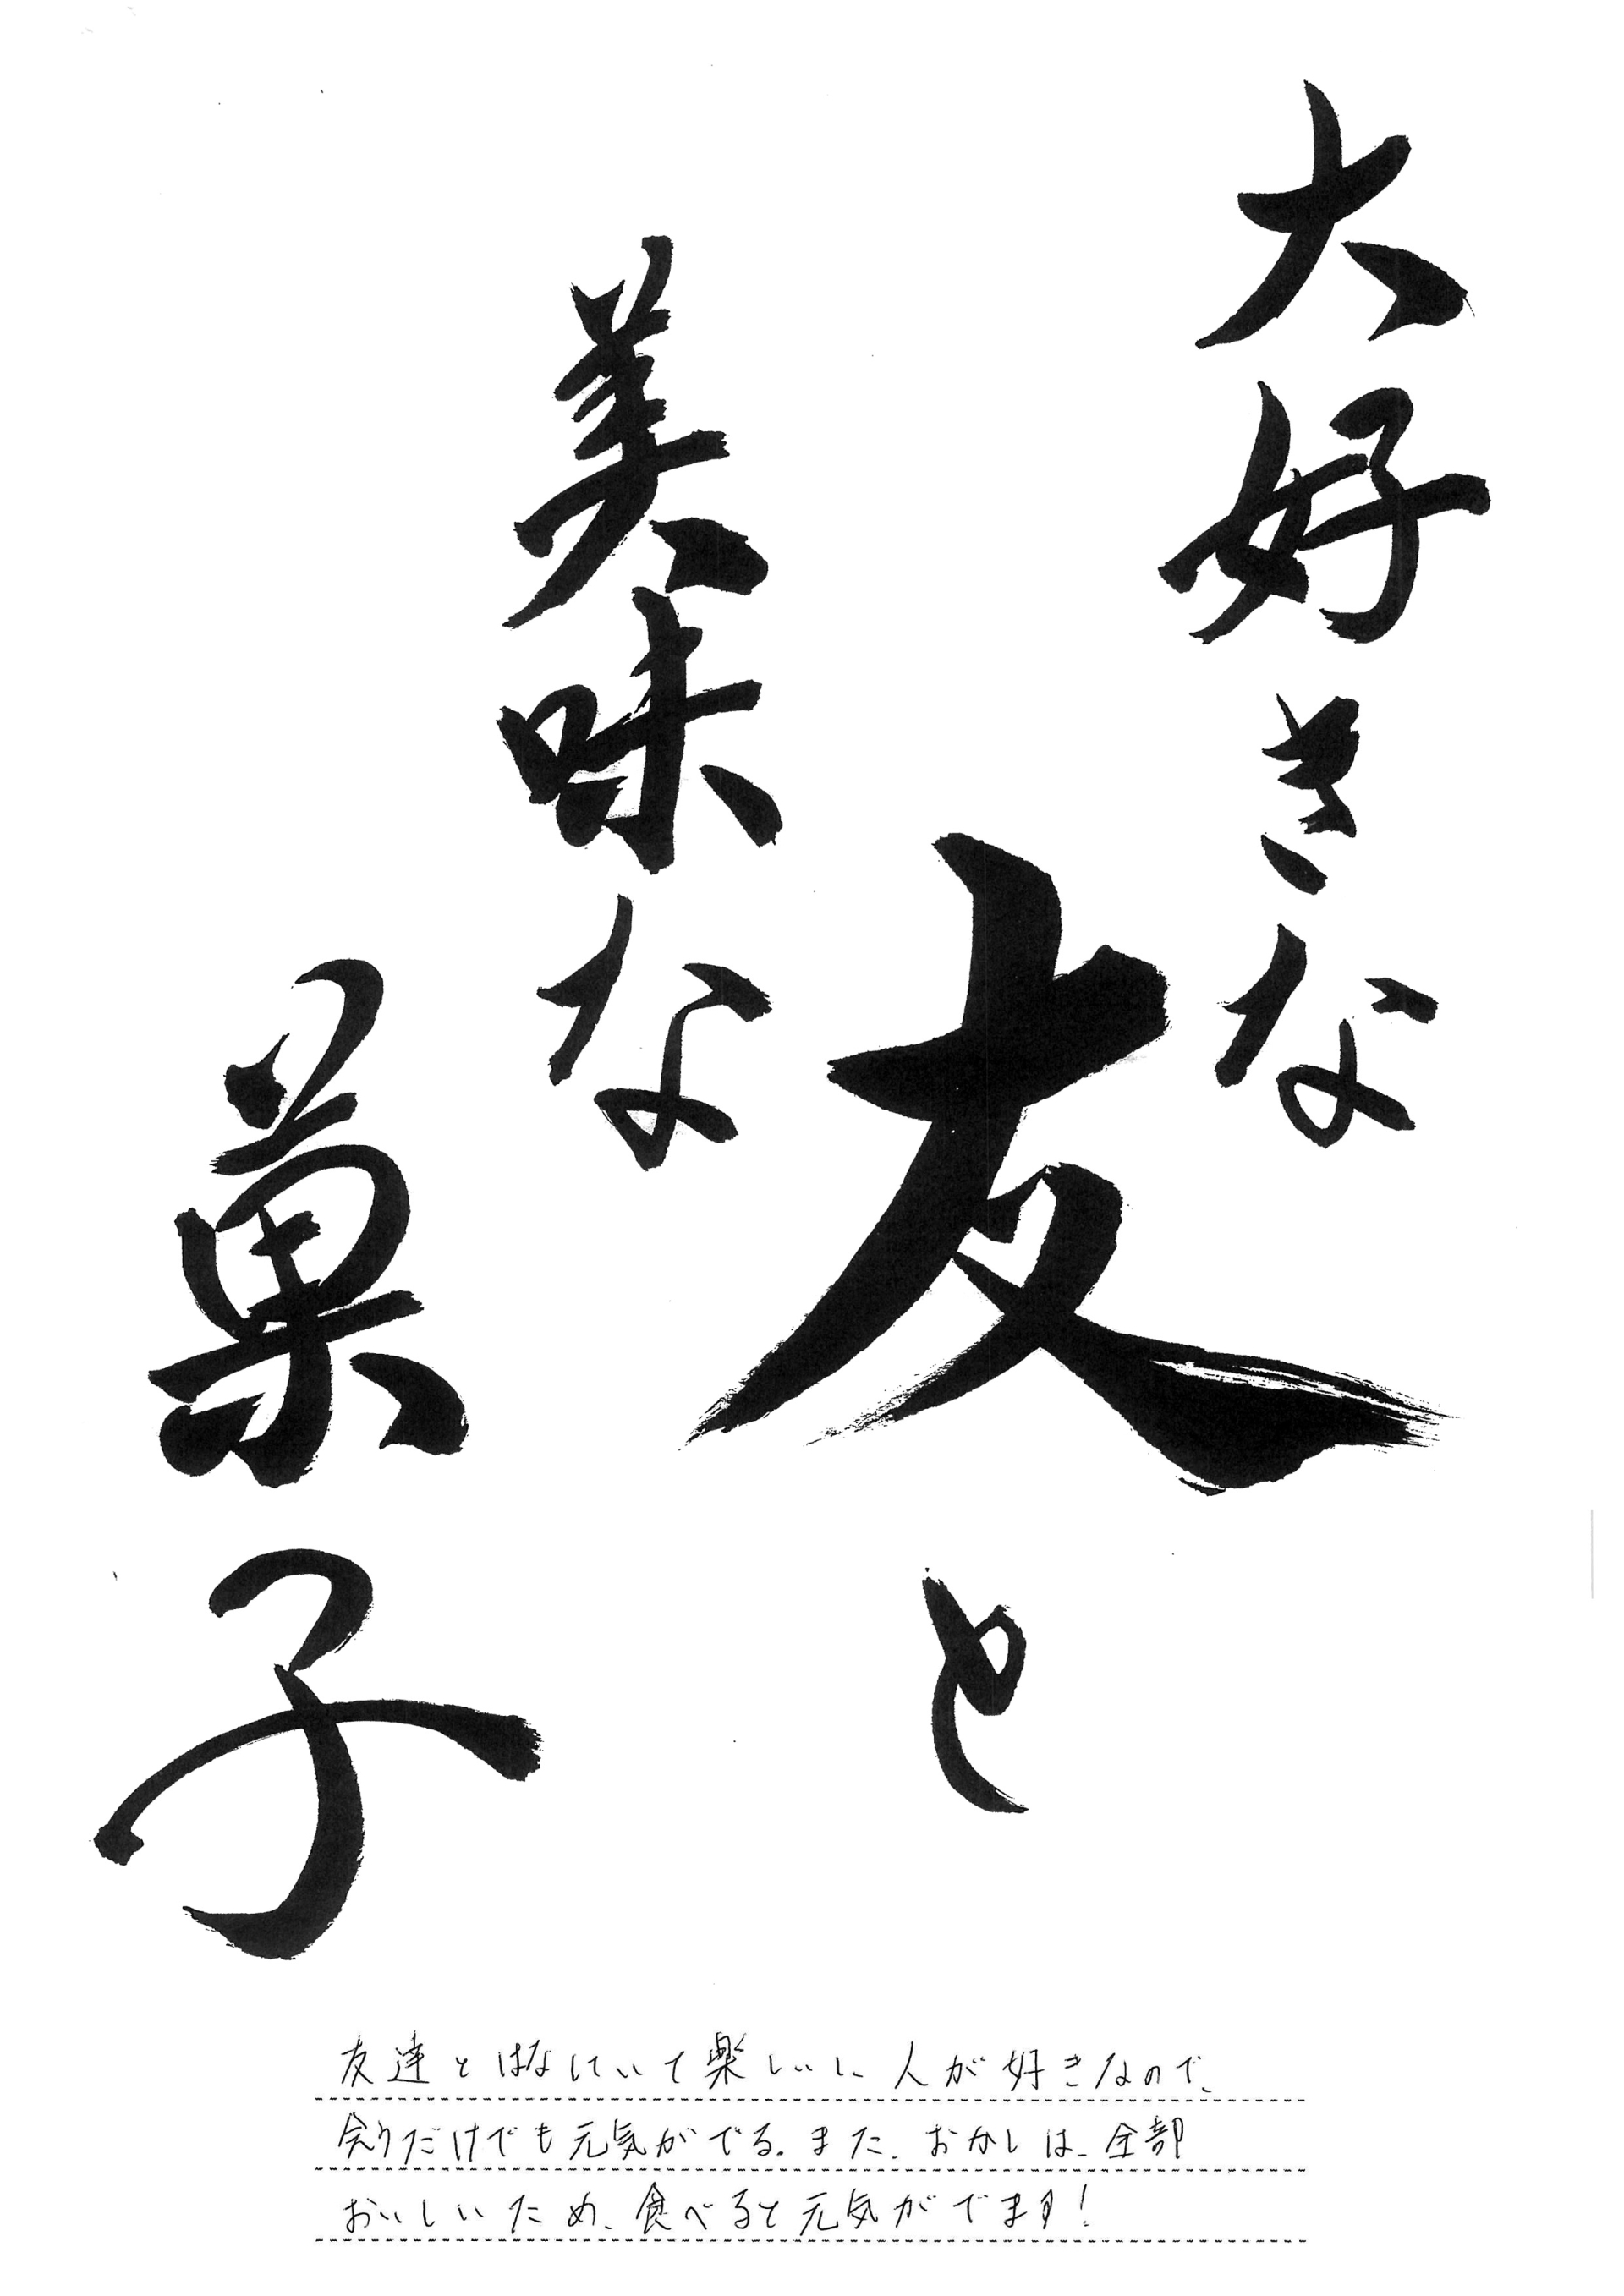 大好きな
友と
美味な
菓子
友達とはなしていて楽しいし、人が好きなので、
会うだけでも元気がでる。また、おかしは、全部
おいしいため、食べると元気がでます！